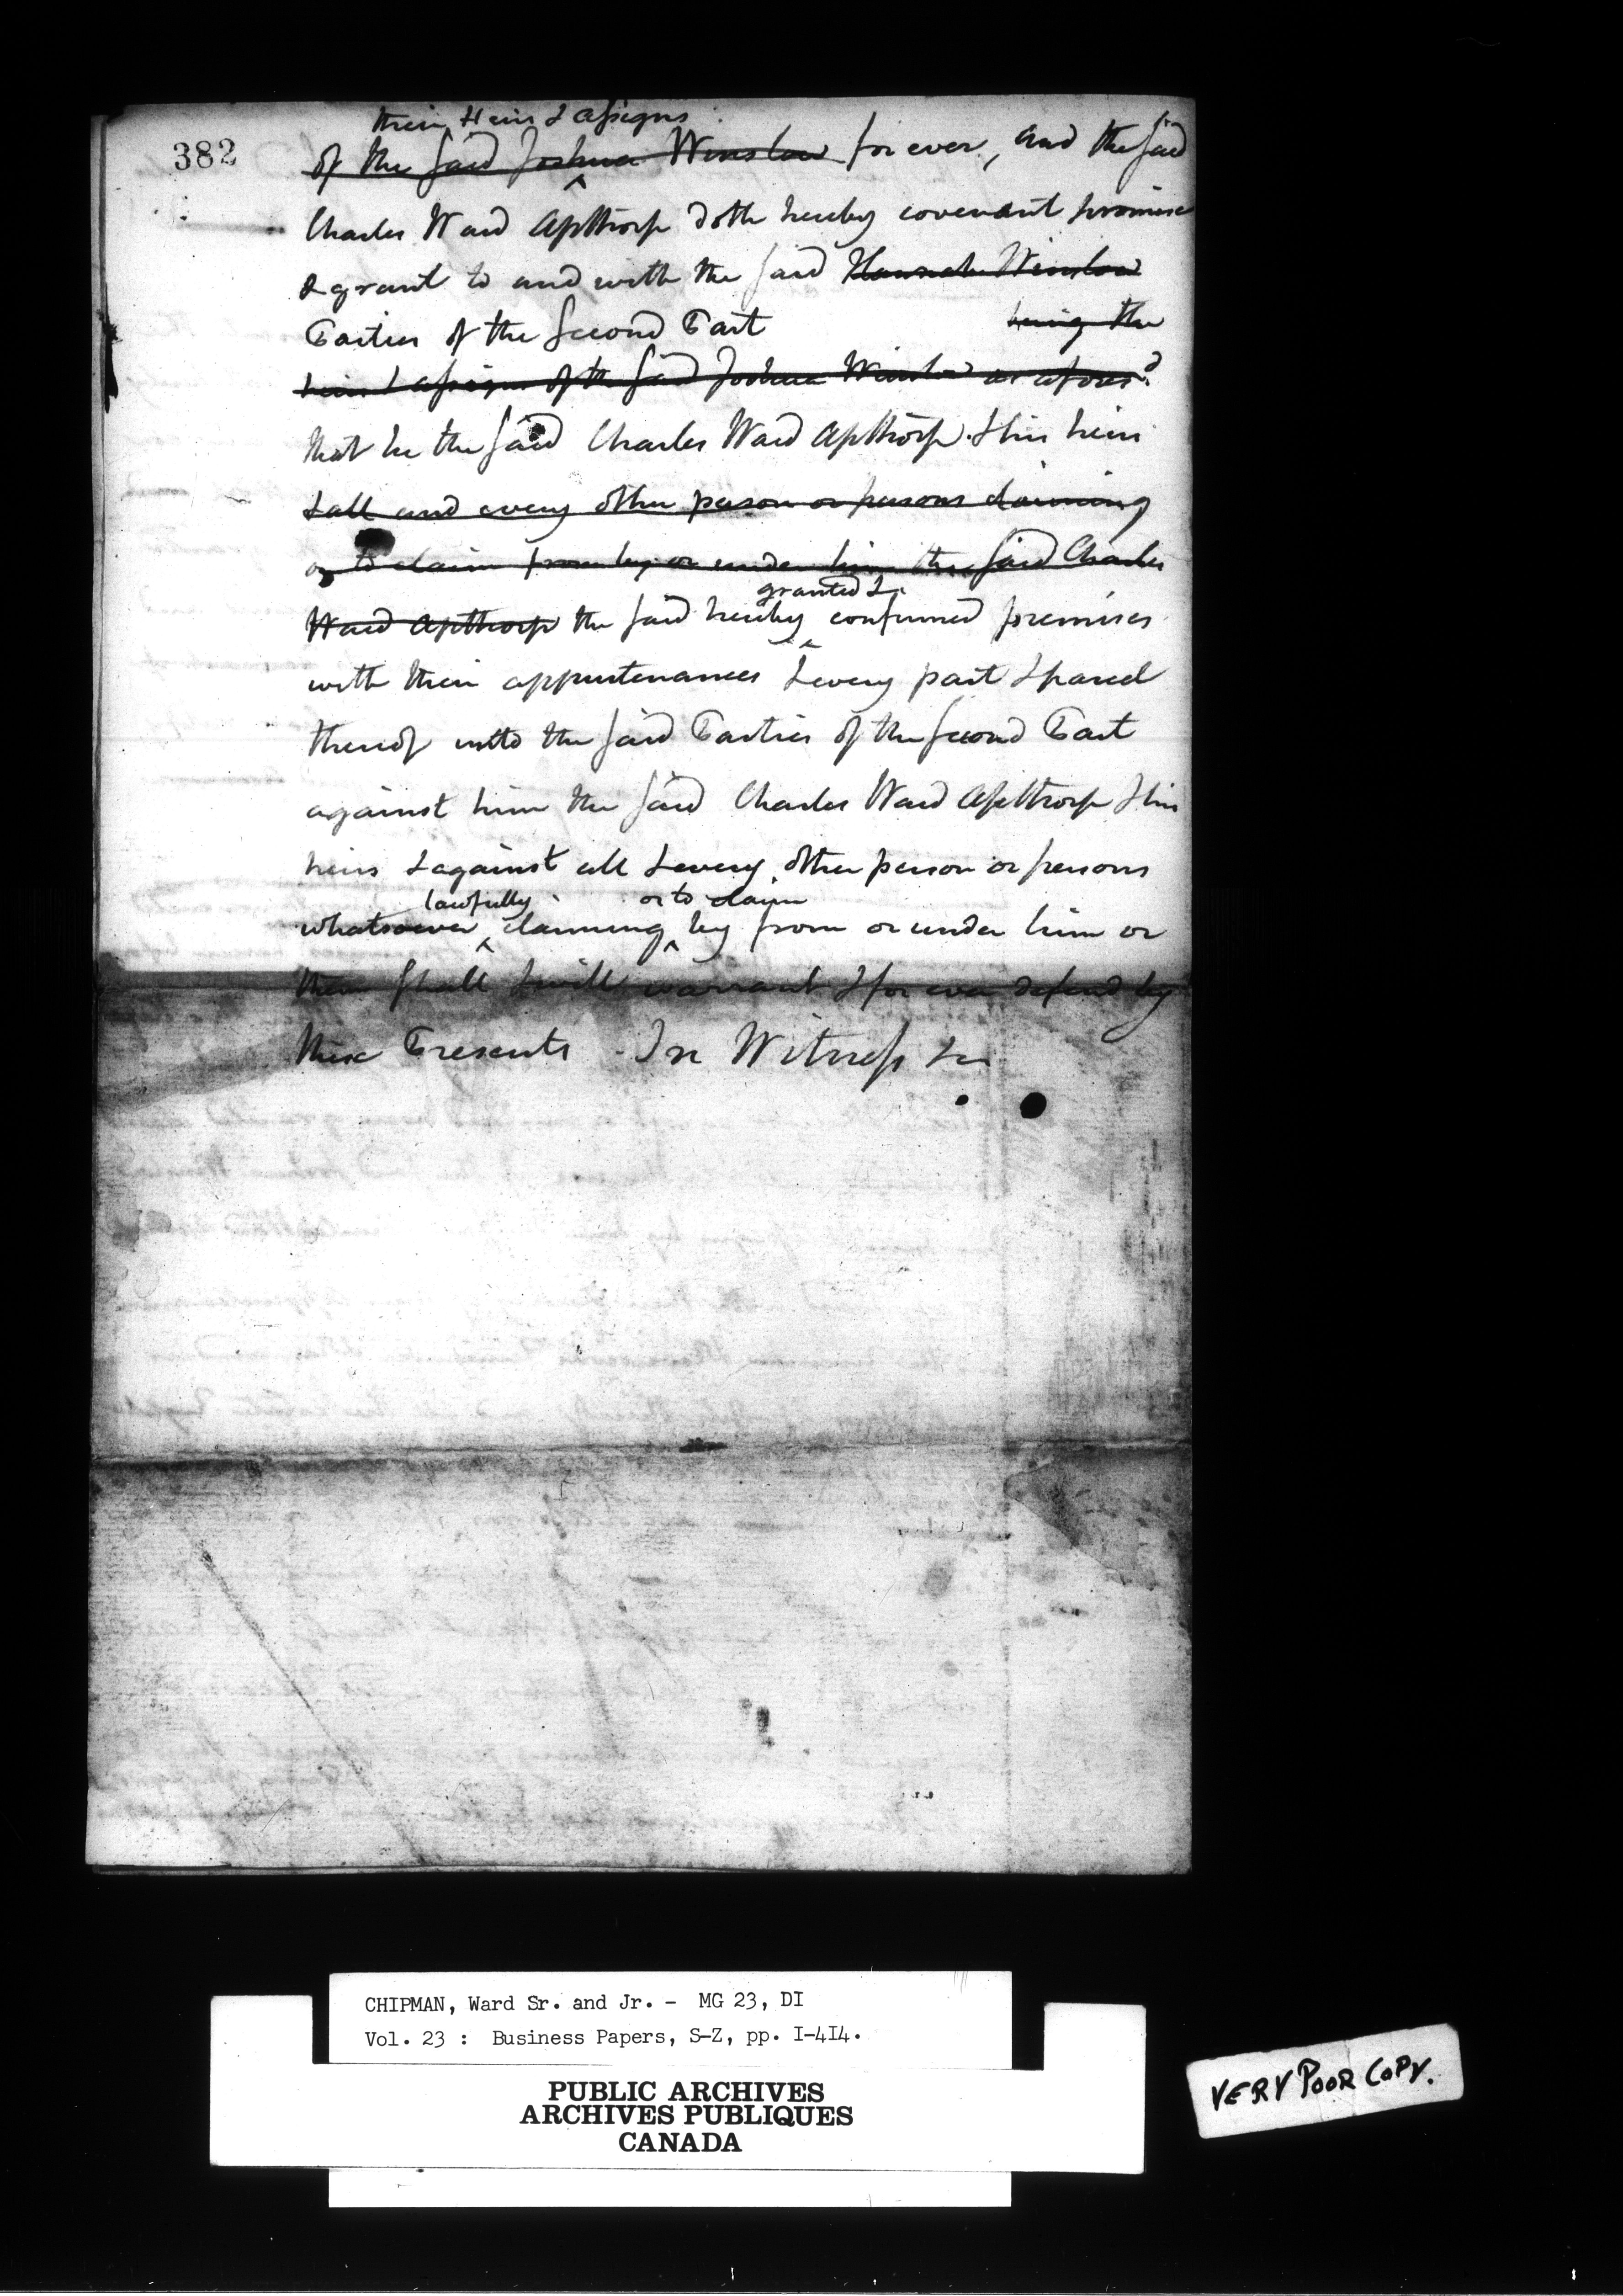 their Heirs & assigns
382
of the said Joshua Winslow for ever, and the said
Charles Ward Apthorp doth hereby covenant promise
& grant to and with the said Hannah Winslow
Parties of the second Part being the
heirs & assigns of the said Joshua Winslow as afores.d
that he the said Charles Ward Apthorp & his heirs
& all and every other person or persons claiming
or to claim from by or under him the said Charles
granted &
Ward Apthorp the said hereby ^ confirmed premises
with their appurtenances & every part & parcel
thereof unto the said Parties of the second Part
against him the said Charles Ward Apthorp & his
heirs & against all & every other person or persons
lawfully or to claim
whatsoever ^ claiming ^ by from or under him or
them shall & will warrant & for ever defend by
these Presents - In Witness &c
CHIPMAN, Ward Sr. and Jr. - MG 23, DI
Vol. 23 : Business Papers, S-Z, pp. I-4I4.
PUBLIC ARCHIVES
ARCHIVES PUBLIQUES
CANADA
VERY POOR COPY.